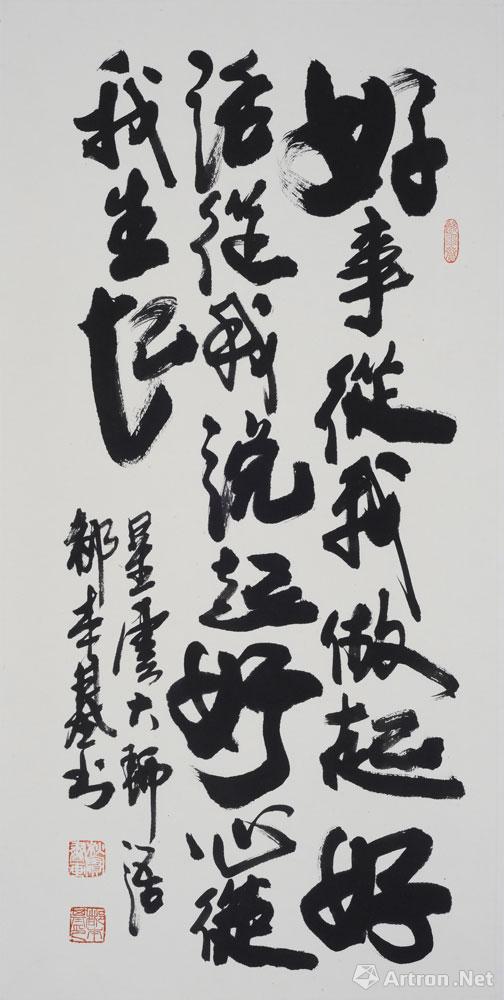 好事從我做起好
話從我说起好心從
我生起
星雲大師語
都本基书
Artron.Net